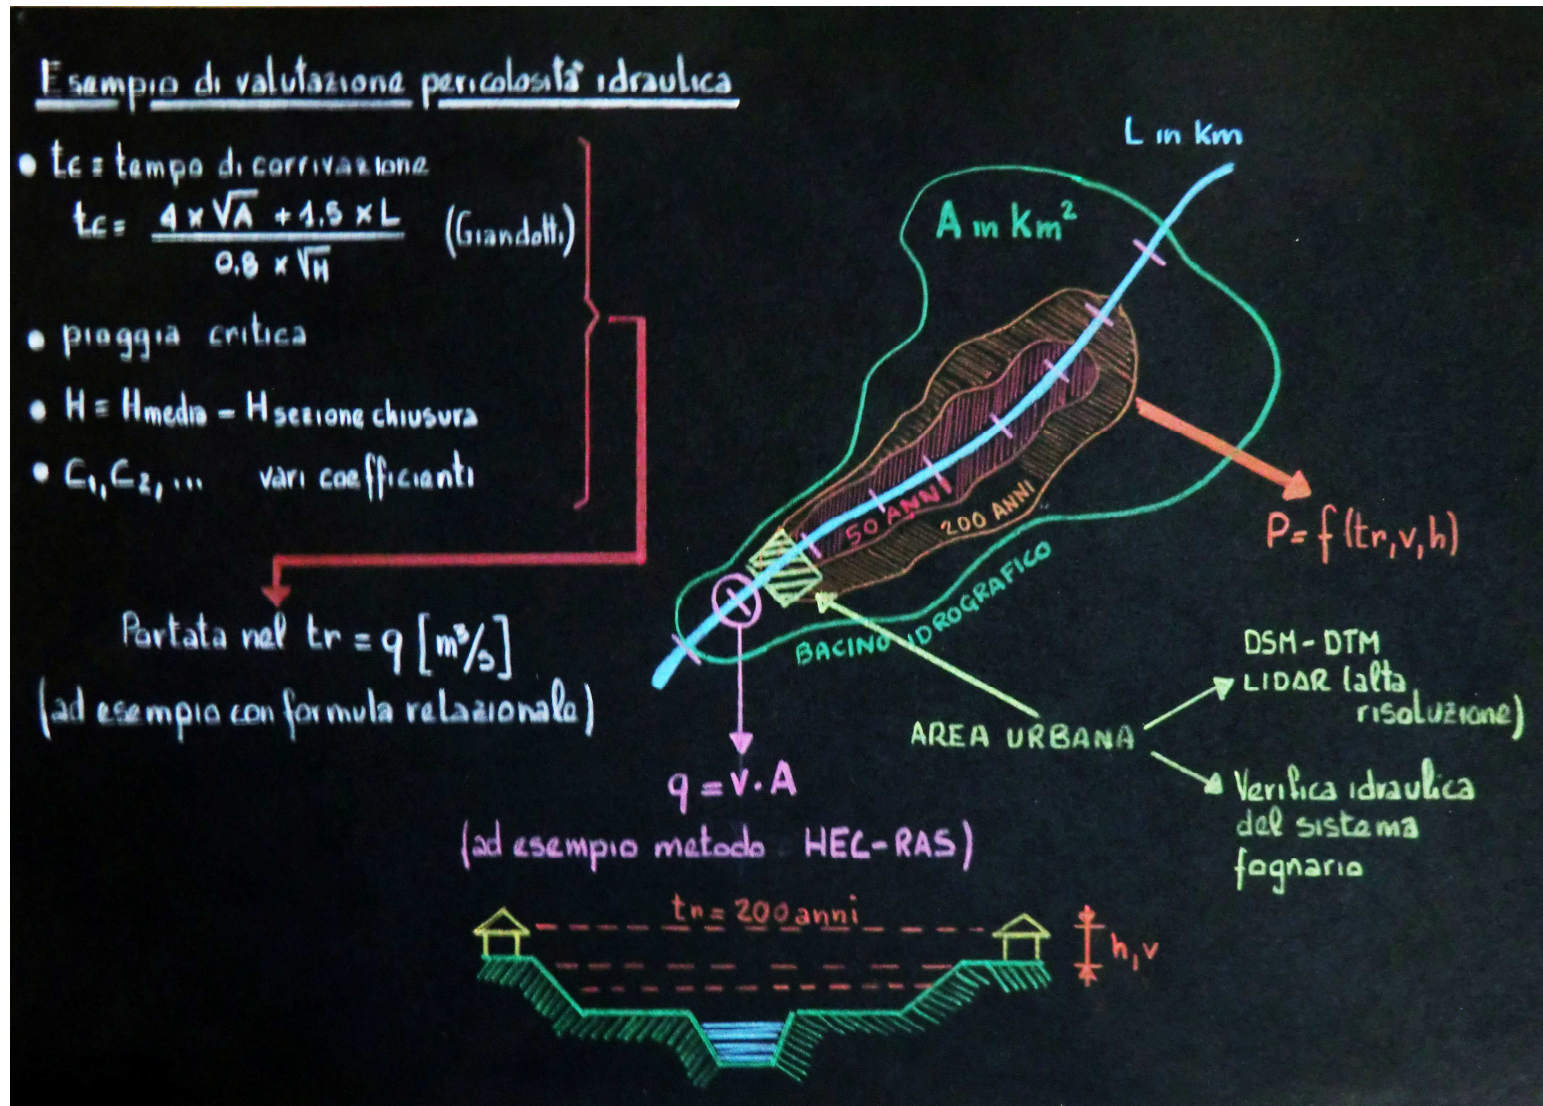 Esempio di valutazione pericolosità idraulica
• tc = tempo di corrivazione
tc = 4 x √A + 1.5 x L (Giandotti)
0.8 x √H
• pioggia critica
• H = Hmedia - Hsezione chiusura
• C1, C2, ... vari coefficienti
Portata nel tr = q [m³/s]
(ad esempio con formula relazionale)
L in km
A in km²
50 ANNI
200 ANNI
BACINO IDROGRAFICO
P = f (tr, v, h)
AREA URBANA
DSM - DTM
LIDAR (alta
risoluzione)
Verifica idraulica
del sistema
fognario
q = v · A
(ad esempio metodo HEC-RAS)
tr = 200 anni
h, v